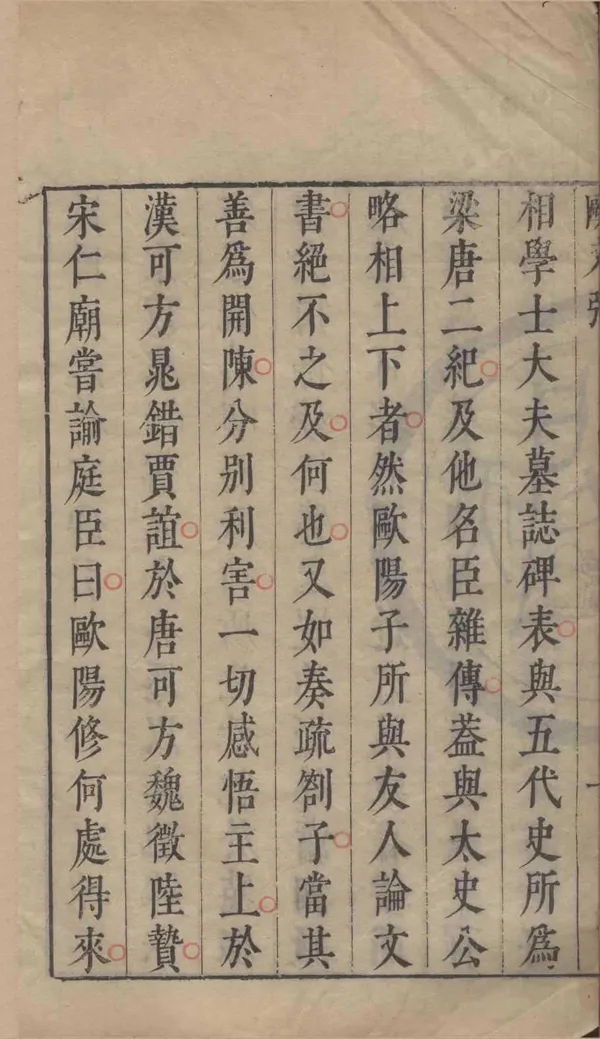 相學士大夫墓誌碑表與五代史所爲
梁唐二紀及他名臣雜傳葢與太史公
略相上下者然歐陽子所與友人論文
書絕不之及何也又如奏疏劄子當其
善爲開陳分别利害一切感悟主上於
漢可方鼂錯賈誼於唐可方魏徵陸贄
宋仁廟嘗諭庭臣曰歐陽修何處得來